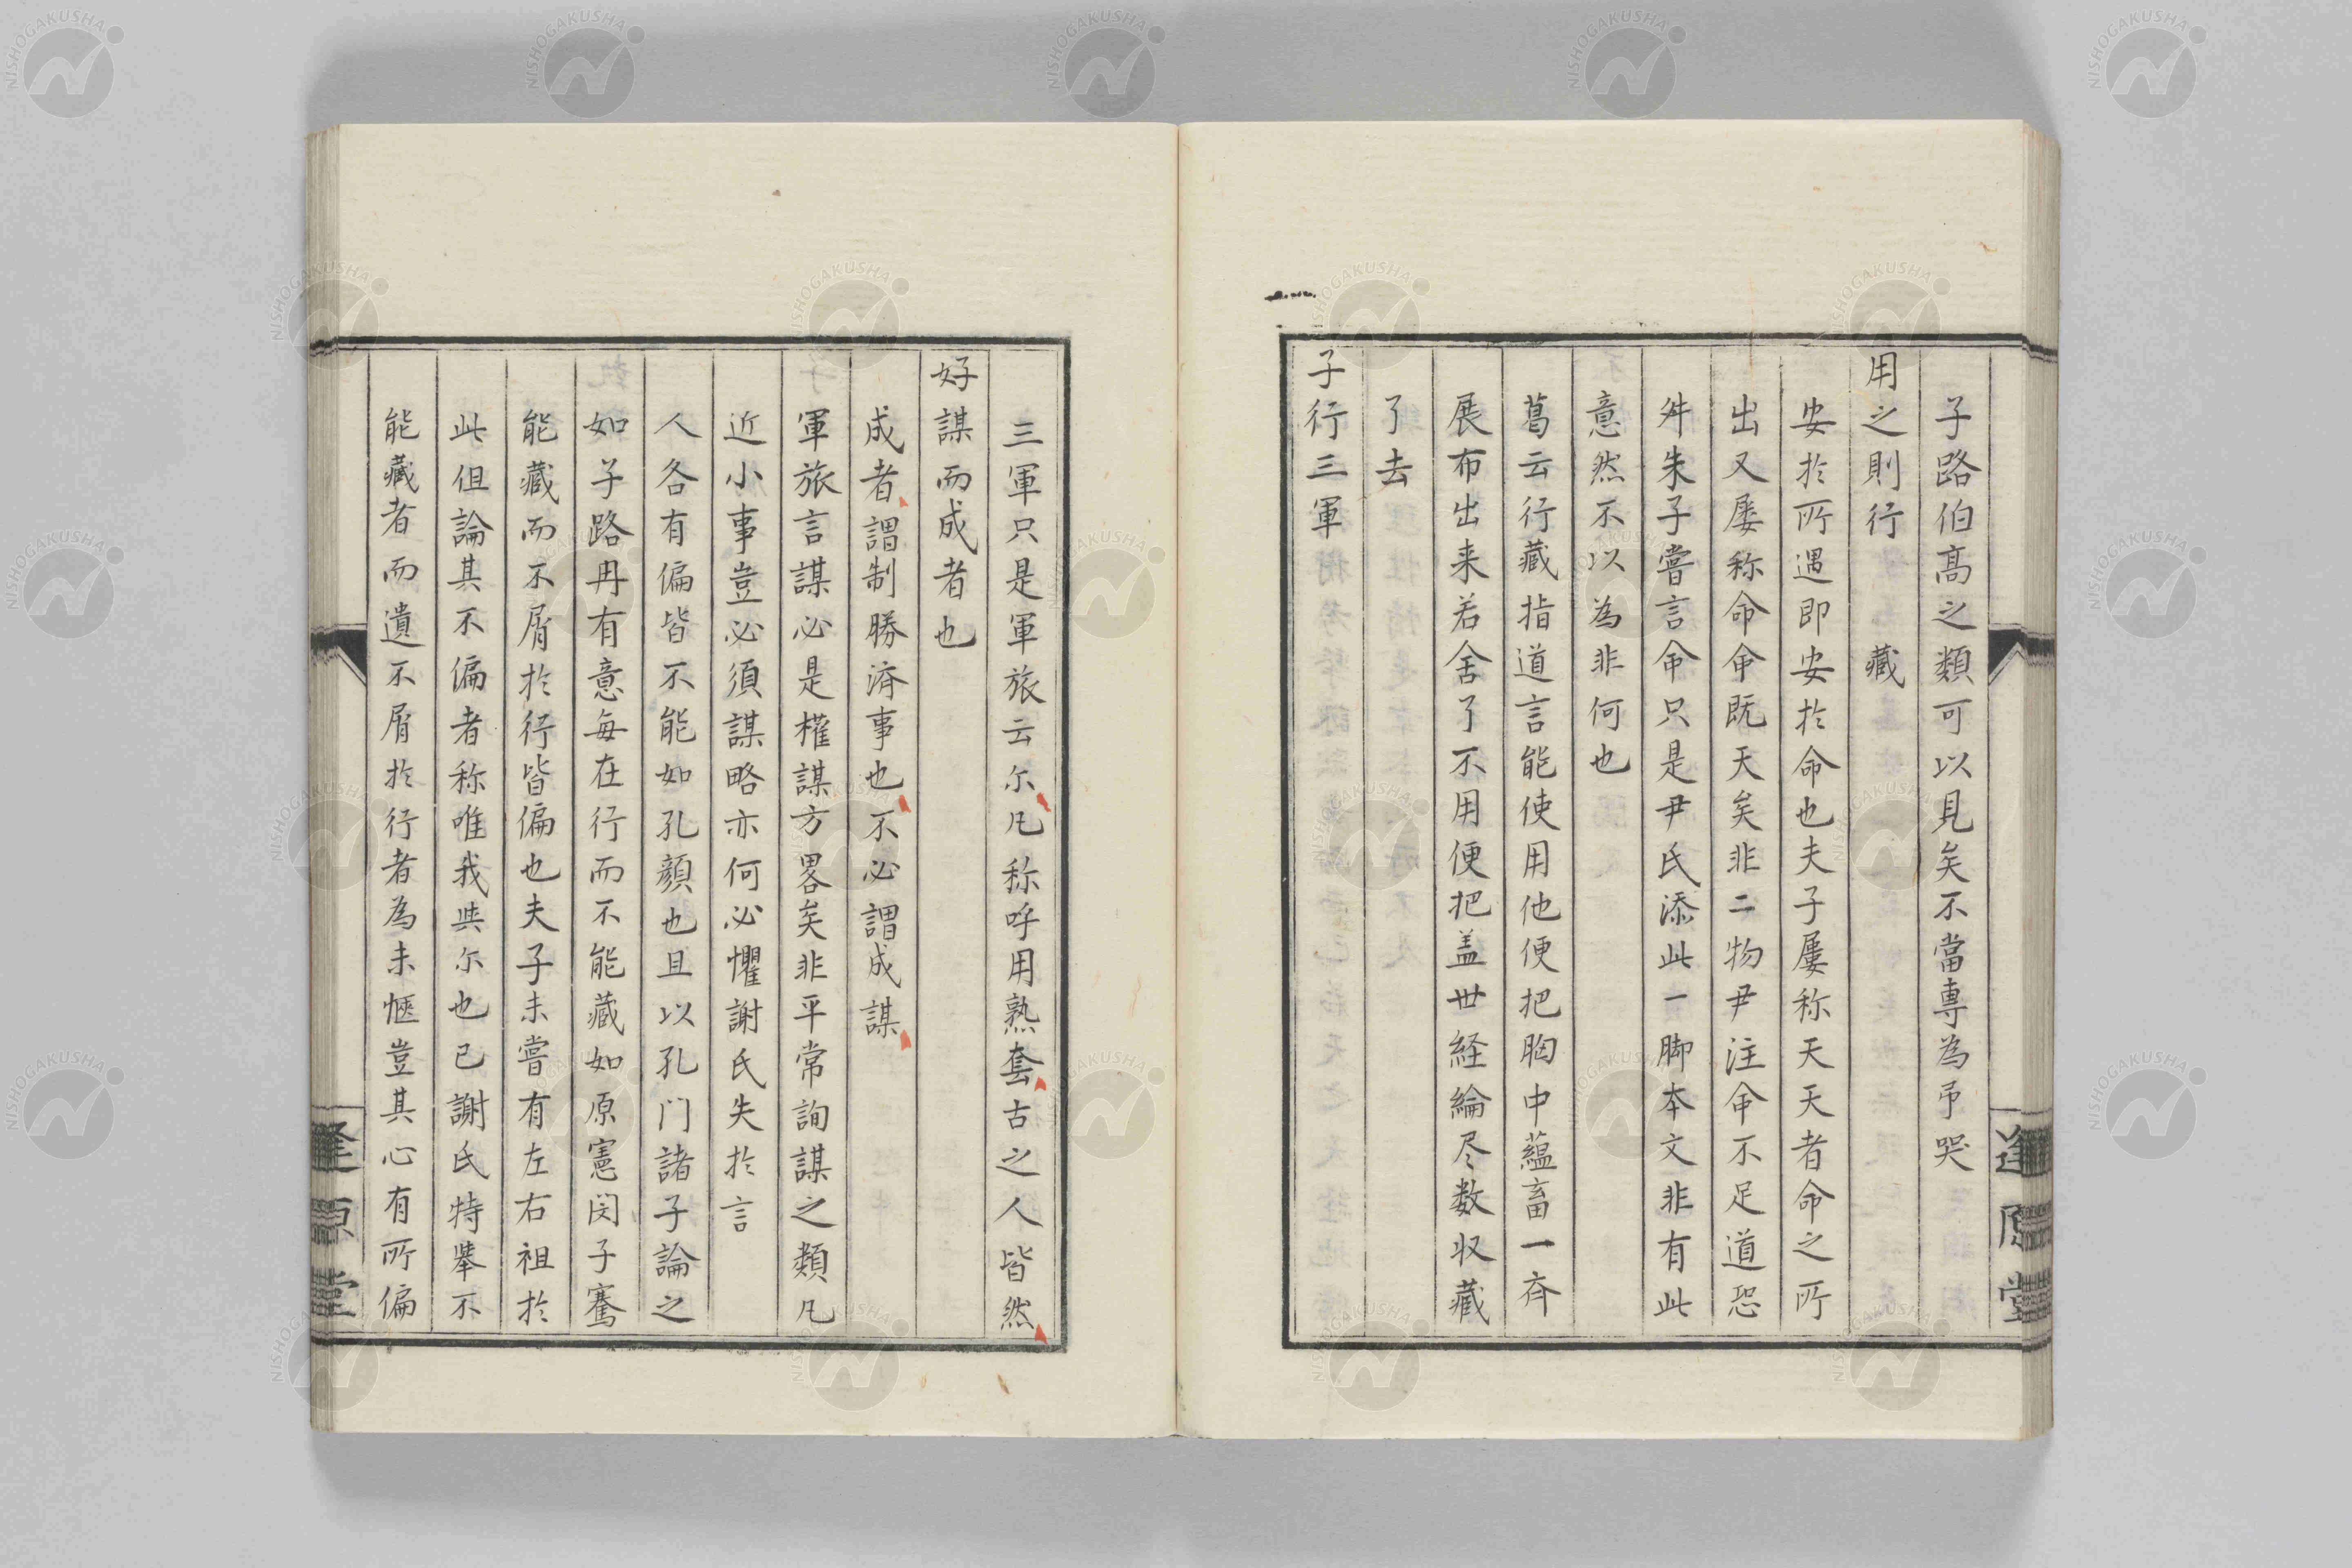 子路伯髙之類可以見矣不當專為弔哭
用之則行　藏
安於所遇即安於命也夫子屢称天天者命之所
出又屢称命命既天矣非二物尹注命不足道恐
舛朱子嘗言命只是尹氏添此一脚本文非有此
意然不以為非何也
葛云行藏指道言能使用他便把胸中蘊畜一斉
展布出来若舍了不用便把盖世経綸尽数収藏
了去
子行三軍
三軍只是軍旅云尓凡称呼用熟套古之人皆然
好謀而成者也
成者謂制勝済事也不必謂成謀
軍旅言謀必是權謀方畧矣非平常詢謀之類凡
近小事豈必須謀略亦何必懼謝氏失於言
人各有偏皆不能如孔顔也且以孔门諸子論之
如子路冉有意每在行而不能藏如原憲闵子騫
能藏而不屑於行皆偏也夫子未嘗有左右袒於
此但論其不偏者称唯我与尓也已謝氏特挙不
能藏者而遺不屑於行者為未愜豈其心有所偏
逢原堂
NISHOGAKUSHA